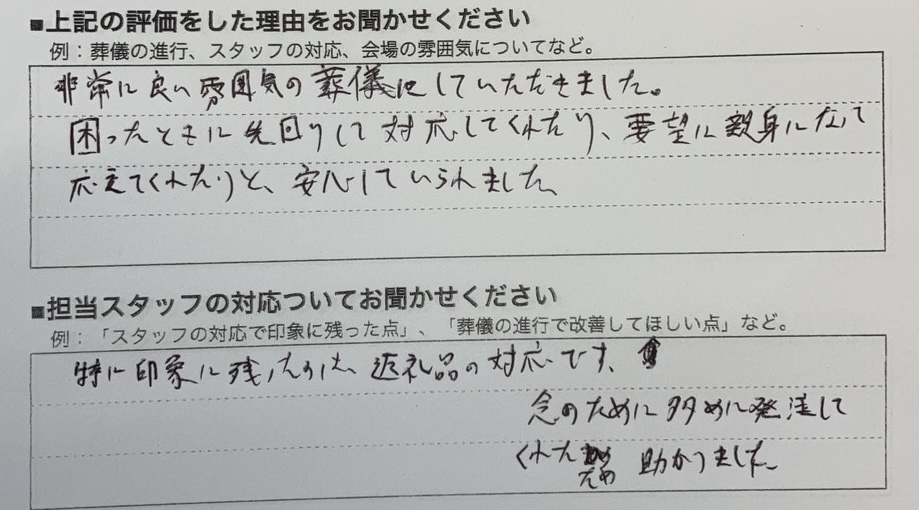 ■上記の評価をした理由をお聞かせください
例：葬儀の進行、スタッフの対応、会場の雰囲気についてなど。
非常に良い雰囲気の葬儀にしていただきました。
困ったときに先回りして対応してくれたり、要望に親身になって
応えてくれたりと、安心していられました。
■担当スタッフの対応ついてお聞かせください
例：「スタッフの対応で印象に残った点」、「葬儀の進行で改善してほしい点」など。
特に印象に残ったのは、返礼品の対応です、
念のために多めに発注して
くれたため 助かりました。